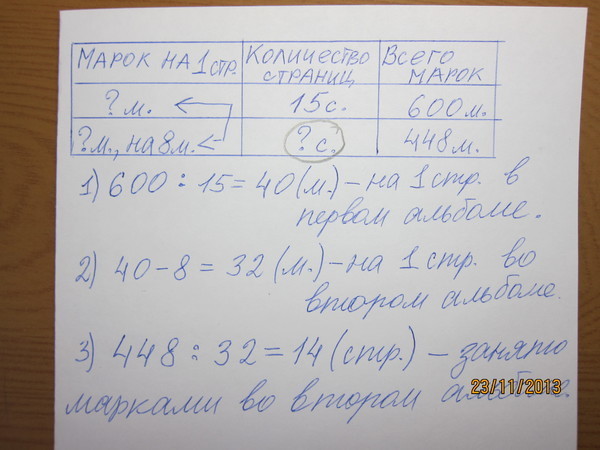 МАРОК НА 1 СТР. КОЛИЧЕСТВО СТРАНИЦ ВСЕГО МАРОК
? м. 15 с. 600 м.
? м., на 8 м. < ? с. 448 м.
1) 600 : 15 = 40 (м.) – на 1 стр. в
первом альбоме.
2) 40 – 8 = 32 (м.) – на 1 стр. во
втором альбоме.
3) 448 : 32 = 14 (стр.) – занято
марками во втором альбоме.
23/11/2013